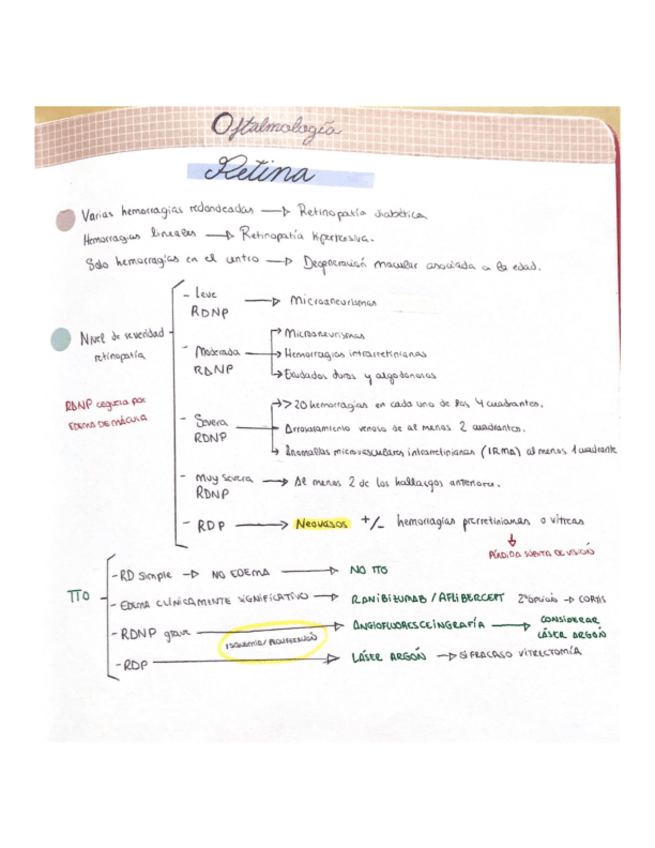 Oftalmología
Retina
Varias hemorragias redondeadas → Retinopatía diabética
Hemorragias lineales → Retinopatía hipertensiva.
Solo hemorragias en el centro → Degeneración macular asociada a la edad.
Nivel de severidad retinopatía
- Leve RDNP → Microaneurismas
- Moderada RDNP
→ Microaneurismas
→ Hemorragias intrarretinianas
→ Exudados duros y algodonosos
RDNP ceguera por
EDEMA DE MÁCULA
- Severa RDNP
→ >20 hemorragias en cada uno de los 4 cuadrantes.
→ Arrosariamiento venoso de al menos 2 cuadrantes.
→ Anomalías microvasculares intrarretinianas (IRMA) al menos 1 cuadrante
- Muy severa RDNP → Al menos 2 de los hallazgos anteriores.
- RDP → Neovasos +/- hemorragias prerretinianas o vítreas
↓
PÉRDIDA SÚBITA DE VISIÓN
TTO
- RD simple → NO EDEMA → NO TTO
- EDEMA CLÍNICAMENTE SIGNIFICATIVO → RANIBIZUMAB / AFLIBERCEPT 2ª opción → CORTIS
- RDNP grave → ANGIOFLUORESCEINGRAFÍA → CONSIDERAR LÁSER ARGÓN
ISQUEMIA/ PROLIFERACIÓN
- RDP → LÁSER ARGÓN → SI FRACASO VITRECTOMÍA